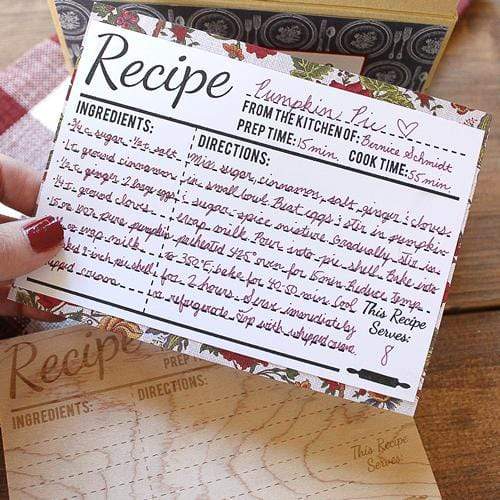 Recipe
Pumpkin Pie ♡
FROM THE KITCHEN OF: Bernice Schmidt
PREP TIME: 15 min. COOK TIME: 55 min.
INGREDIENTS:
¾ c. sugar ½ t. salt
1 t. ground cinnamon
½ t. ginger 2 large eggs
¼ t. ground cloves
15 oz can pure pumpkin
evap. milk
2-inch pie shell
whipped cream
DIRECTIONS:
Mix sugar, cinnamon, salt, ginger & cloves
in small bowl. Beat eggs & stir in pumpkin
& sugar-spice mixture. Gradually stir in
evap. milk. Pour into pie shell. Bake into
preheated 425° oven for 15 min. Reduce temp.
to 350°F, bake for 40-50 min. Cool
for 2 hours. Serve immediately
or refrigerate. Top with whipped cream.
This Recipe
Serves:
8
Recipe
PREP
INGREDIENTS:
DIRECTIONS:
This Recipe
Serves: